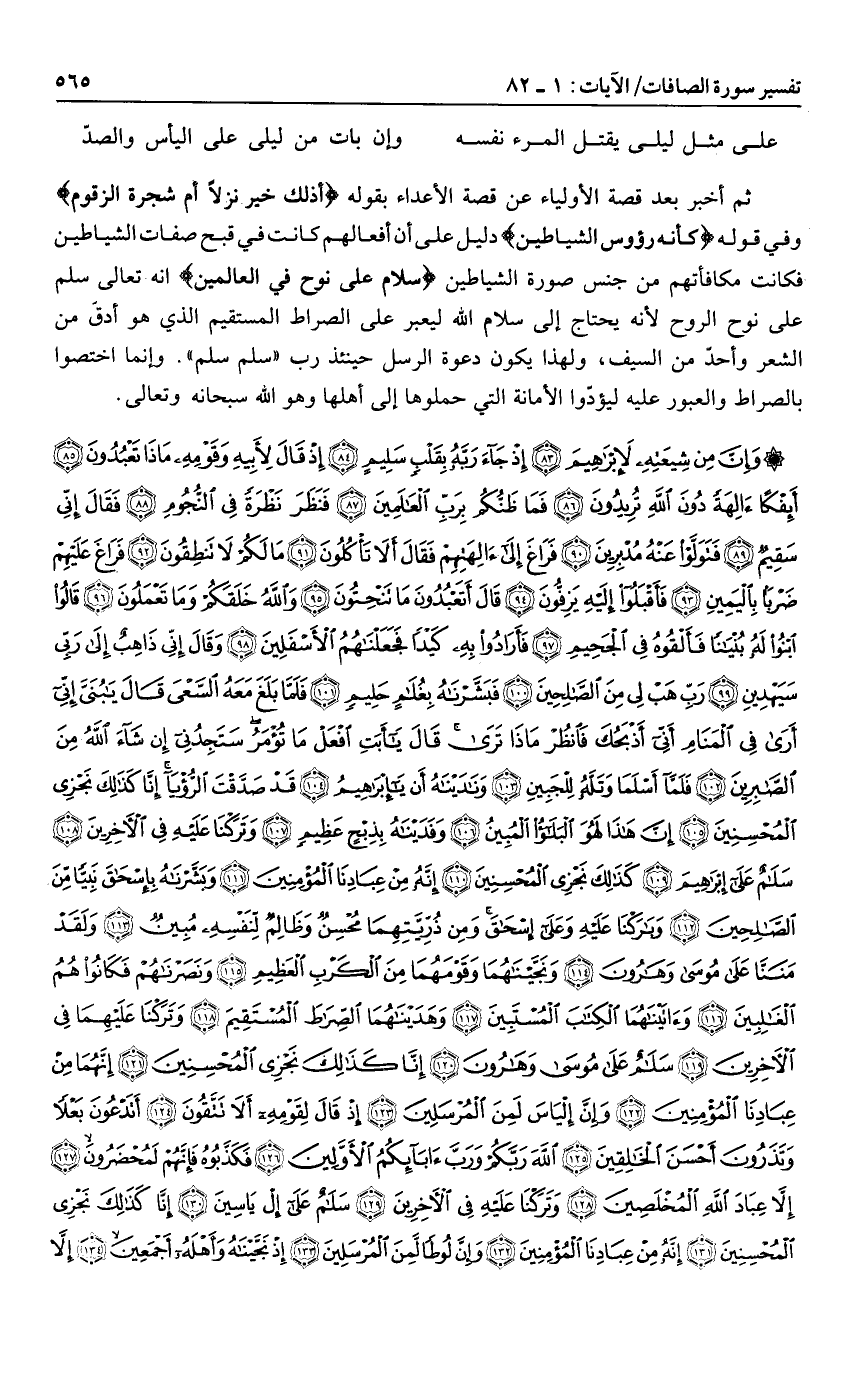 تفسير سورة الصافات/ الآيات: ١ ـ ٨٢ ٥٦٥
علـى مثـل ليلـى يقتـل المـرء نفسـه وإن بات من ليلى على اليأس والصدّ
ثم أخبر بعد قصة الأولياء عن قصة الأعداء بقوله ﴿أذلك خير نزلاً أم شجرة الزقوم﴾
وفي قوله ﴿كأنه رؤوس الشياطين﴾ دليل على أن أفعالهم كانت في قبح صفات الشياطين
فكانت مكافأتهم من جنس صورة الشياطين ﴿سلام على نوح في العالمين﴾ انه تعالى سلم
على نوح الروح لأنه يحتاج إلى سلام الله ليعبر على الصراط المستقيم الذي هو أدقّ من
الشعر وأحدّ من السيف، ولهذا يكون دعوة الرسل حينئذ رب «سلم سلم». وإنما اختصوا
بالصراط والعبور عليه ليؤدّوا الأمانة التي حملوها إلى أهلها وهو الله سبحانه وتعالى.
۞ وَإِنَّ مِن شِيعَتِهِۦ لَإِبْرَٰهِيمَ ﴿٨٣﴾ إِذْ جَآءَ رَبَّهُۥ بِقَلْبٍ سَلِيمٍ ﴿٨٤﴾ إِذْ قَالَ لِأَبِيهِ وَقَوْمِهِۦ مَاذَا تَعْبُدُونَ ﴿٨٥﴾
أَئِفْكًا ءَالِهَةً دُونَ ٱللَّهِ تُرِيدُونَ ﴿٨٦﴾ فَمَا ظَنُّكُم بِرَبِّ ٱلْعَٰلَمِينَ ﴿٨٧﴾ فَنَظَرَ نَظْرَةً فِى ٱلنُّجُومِ ﴿٨٨﴾ فَقَالَ إِنِّى
سَقِيمٌ ﴿٨٩﴾ فَتَوَلَّوْا۟ عَنْهُ مُدْبِرِينَ ﴿٩٠﴾ فَرَاغَ إِلَىٰٓ ءَالِهَتِهِمْ فَقَالَ أَلَا تَأْكُلُونَ ﴿٩١﴾ مَا لَكُمْ لَا تَنطِقُونَ ﴿٩٢﴾ فَرَاغَ عَلَيْهِمْ
ضَرْبًۢا بِٱلْيَمِينِ ﴿٩٣﴾ فَأَقْبَلُوٓا۟ إِلَيْهِ يَزِفُّونَ ﴿٩٤﴾ قَالَ أَتَعْبُدُونَ مَا تَنْحِتُونَ ﴿٩٥﴾ وَٱللَّهُ خَلَقَكُمْ وَمَا تَعْمَلُونَ ﴿٩٦﴾ قَالُوا۟
ٱبْنُوا۟ لَهُۥ بُنْيَٰنًا فَأَلْقُوهُ فِى ٱلْجَحِيمِ ﴿٩٧﴾ فَأَرَادُوا۟ بِهِۦ كَيْدًا فَجَعَلْنَٰهُمُ ٱلْأَسْفَلِينَ ﴿٩٨﴾ وَقَالَ إِنِّى ذَاهِبٌ إِلَىٰ رَبِّى
سَيَهْدِينِ ﴿٩٩﴾ رَبِّ هَبْ لِى مِنَ ٱلصَّٰلِحِينَ ﴿١٠٠﴾ فَبَشَّرْنَٰهُ بِغُلَٰمٍ حَلِيمٍ ﴿١٠١﴾ فَلَمَّا بَلَغَ مَعَهُ ٱلسَّعْىَ قَالَ يَٰبُنَىَّ إِنِّىٓ
أَرَىٰ فِى ٱلْمَنَامِ أَنِّىٓ أَذْبَحُكَ فَٱنظُرْ مَاذَا تَرَىٰ ۚ قَالَ يَٰٓأَبَتِ ٱفْعَلْ مَا تُؤْمَرُ ۖ سَتَجِدُنِىٓ إِن شَآءَ ٱللَّهُ مِنَ
ٱلصَّٰبِرِينَ ﴿١٠٢﴾ فَلَمَّآ أَسْلَمَا وَتَلَّهُۥ لِلْجَبِينِ ﴿١٠٣﴾ وَنَٰدَيْنَٰهُ أَن يَٰٓإِبْرَٰهِيمُ ﴿١٠٤﴾ قَدْ صَدَّقْتَ ٱلرُّءْيَآ ۚ إِنَّا كَذَٰلِكَ نَجْزِى
ٱلْمُحْسِنِينَ ﴿١٠٥﴾ إِنَّ هَٰذَا لَهُوَ ٱلْبَلَٰٓؤُا۟ ٱلْمُبِينُ ﴿١٠٦﴾ وَفَدَيْنَٰهُ بِذِبْحٍ عَظِيمٍ ﴿١٠٧﴾ وَتَرَكْنَا عَلَيْهِ فِى ٱلْءَاخِرِينَ ﴿١٠٨﴾
سَلَٰمٌ عَلَىٰٓ إِبْرَٰهِيمَ ﴿١٠٩﴾ كَذَٰلِكَ نَجْزِى ٱلْمُحْسِنِينَ ﴿١١٠﴾ إِنَّهُۥ مِنْ عِبَادِنَا ٱلْمُؤْمِنِينَ ﴿١١١﴾ وَبَشَّرْنَٰهُ بِإِسْحَٰقَ نَبِيًّا مِّنَ
ٱلصَّٰلِحِينَ ﴿١١٢﴾ وَبَٰرَكْنَا عَلَيْهِ وَعَلَىٰٓ إِسْحَٰقَ ۚ وَمِن ذُرِّيَّتِهِمَا مُحْسِنٌ وَظَالِمٌ لِّنَفْسِهِۦ مُبِينٌ ﴿١١٣﴾ وَلَقَدْ
مَنَنَّا عَلَىٰ مُوسَىٰ وَهَٰرُونَ ﴿١١٤﴾ وَنَجَّيْنَٰهُمَا وَقَوْمَهُمَا مِنَ ٱلْكَرْبِ ٱلْعَظِيمِ ﴿١١٥﴾ وَنَصَرْنَٰهُمْ فَكَانُوا۟ هُمُ
ٱلْغَٰلِبِينَ ﴿١١٦﴾ وَءَاتَيْنَٰهُمَا ٱلْكِتَٰبَ ٱلْمُسْتَبِينَ ﴿١١٧﴾ وَهَدَيْنَٰهُمَا ٱلصِّرَٰطَ ٱلْمُسْتَقِيمَ ﴿١١٨﴾ وَتَرَكْنَا عَلَيْهِمَا فِى
ٱلْءَاخِرِينَ ﴿١١٩﴾ سَلَٰمٌ عَلَىٰ مُوسَىٰ وَهَٰرُونَ ﴿١٢٠﴾ إِنَّا كَذَٰلِكَ نَجْزِى ٱلْمُحْسِنِينَ ﴿١٢١﴾ إِنَّهُمَا مِنْ
عِبَادِنَا ٱلْمُؤْمِنِينَ ﴿١٢٢﴾ وَإِنَّ إِلْيَاسَ لَمِنَ ٱلْمُرْسَلِينَ ﴿١٢٣﴾ إِذْ قَالَ لِقَوْمِهِۦٓ أَلَا تَتَّقُونَ ﴿١٢٤﴾ أَتَدْعُونَ بَعْلًا
وَتَذَرُونَ أَحْسَنَ ٱلْخَٰلِقِينَ ﴿١٢٥﴾ ٱللَّهَ رَبَّكُمْ وَرَبَّ ءَابَآئِكُمُ ٱلْأَوَّلِينَ ﴿١٢٦﴾ فَكَذَّبُوهُ فَإِنَّهُمْ لَمُحْضَرُونَ ﴿١٢٧﴾
إِلَّا عِبَادَ ٱللَّهِ ٱلْمُخْلَصِينَ ﴿١٢٨﴾ وَتَرَكْنَا عَلَيْهِ فِى ٱلْءَاخِرِينَ ﴿١٢٩﴾ سَلَٰمٌ عَلَىٰٓ إِلْ يَاسِينَ ﴿١٣٠﴾ إِنَّا كَذَٰلِكَ نَجْزِى
ٱلْمُحْسِنِينَ ﴿١٣١﴾ إِنَّهُۥ مِنْ عِبَادِنَا ٱلْمُؤْمِنِينَ ﴿١٣٢﴾ وَإِنَّ لُوطًا لَّمِنَ ٱلْمُرْسَلِينَ ﴿١٣٣﴾ إِذْ نَجَّيْنَٰهُ وَأَهْلَهُۥٓ أَجْمَعِينَ ﴿١٣٤﴾ إِلَّا